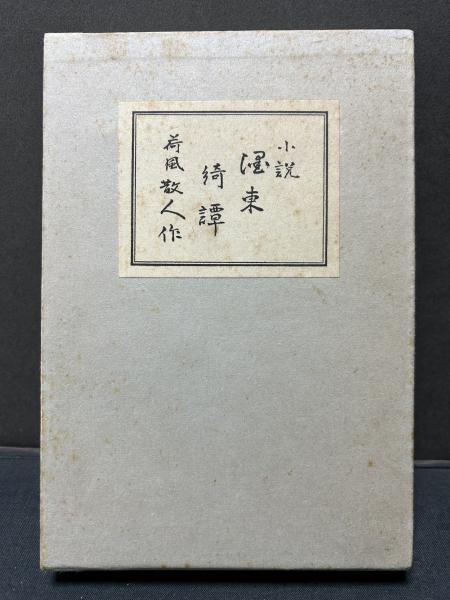 小説
濹東
綺譚
荷風散人作